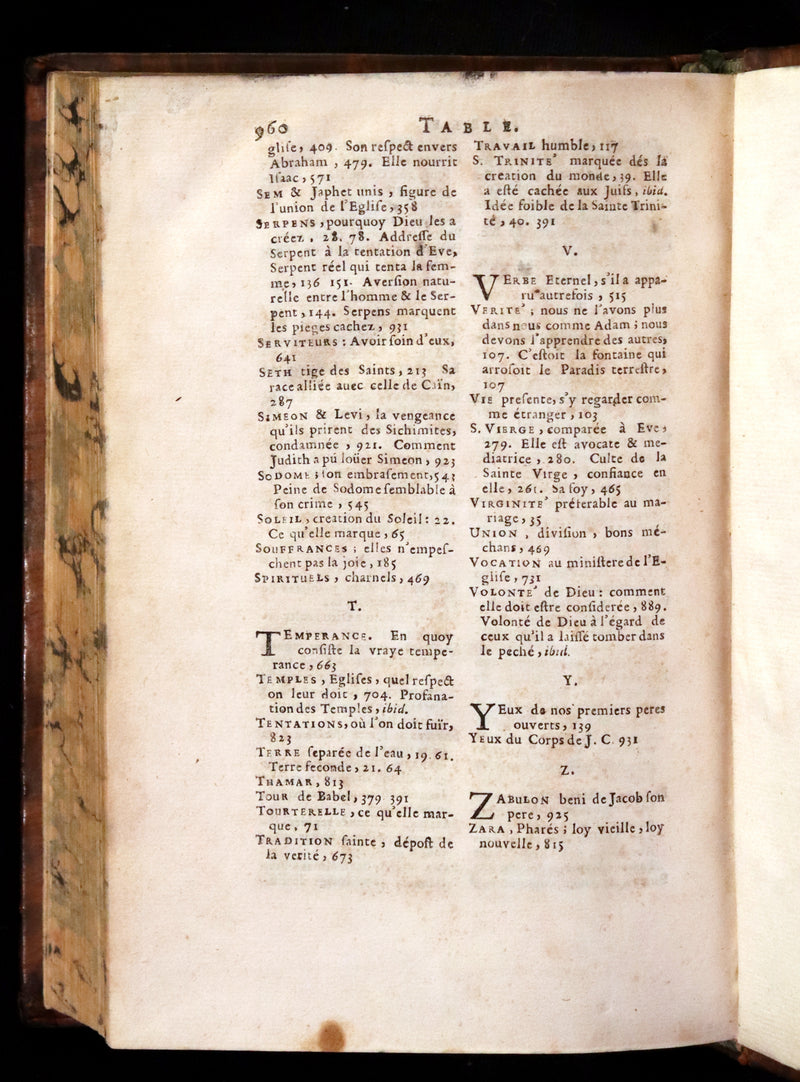 960 TABLE.
gliſe, 409. Son reſpect envers
Abraham , 479. Elle nourrit
Iſaac, 571
SEM & Japhet unis , figure de
l'union de l'Egliſe, 358
SERPENS , pourquoy Dieu les a
créez , 28. 78. Addreſſe du
Serpent à la tentation d'Eve,
Serpent réel qui tenta la fem-
me, 136 151. Averſion natu-
relle entre l'homme & le Ser-
pent, 144. Serpens marquent
les pieges cachez, 931
SERVITEURS : Avoir ſoin d'eux,
641
SETH tige des Saints, 213 Sa
race alliée auec celle de Caïn,
287
SIMEON & Levi, la vengeance
qu'ils prirent des Sichimites,
condamnée , 921. Comment
Judith a pú loüer Simeon, 923
SODOME ; ſon embraſement, 543
Peine de Sodome ſemblable à
ſon crime , 545
SOLEIL, creation du Soleil: 22.
Ce qu'elle marque, 65
SOUFFRANCES ; elles n'empeſ-
chent pas la joie, 185
SPIRITUELS, charnels, 469
T.
TEMPERANCE. En quoy
conſiſte la vraye tempe-
rance, 663
TEMPLES, Egliſes, quel reſpect
on leur doit , 704. Profana-
tion des Temples, ibid.
TENTATIONS, où l'on doit fuïr,
823
TERRE ſeparée de l'eau, 19. 61.
Terre feconde, 21. 64
THAMAR, 813
TOUR de Babel, 379 391
TOURTERELLE, ce qu'elle mar-
que, 71
TRADITION ſainte , dépoſt de
la verité, 673
TRAVAIL humble, 117
S. TRINITE' marquée dés la
creation du monde, 39. Elle
a eſté cachée aux Juifs, ibid.
Idée foible de la Sainte Trini-
té, 40. 391
V.
VERBE Eternel, s'il a appa-
ru autrefois , 515
VERITE' ; nous ne l'avons plus
dans nous comme Adam ; nous
devons l'apprendre des autres,
107. C'eſtoit la fontaine qui
arroſoit le Paradis terreſtre,
107
VIE preſente, s'y regarder com-
me étranger, 103
S. VIERGE, comparée à Eve,
279. Elle eſt avocate & me-
diatrice , 280. Culte de la
Sainte Virge , confiance en
elle, 261. Sa foy, 465
VIRGINITE' préferable au ma-
riage, 35
UNION , diviſion , bons mé-
chans, 469
VOCATION au miniſtere de l'E-
gliſe, 731
VOLONTE' de Dieu : comment
elle doit eſtre conſiderée, 889.
Volonté de Dieu à l'égard de
ceux qu'il a laiſſé tomber dans
le peché, ibid.
Y.
YEux de nos premiers peres
ouverts, 139
YEUX du Corps de J. C. 931
Z.
ZABULON beni de Jacob ſon
pere, 925
ZARA , Pharés ; loy vieille, loy
nouvelle, 815